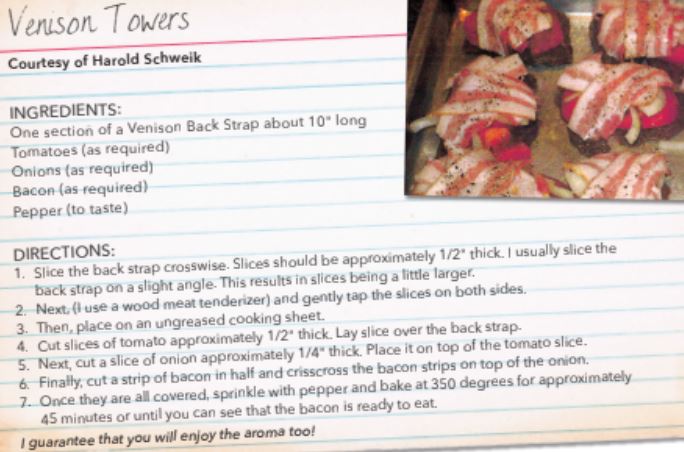 Venison Towers
Courtesy of Harold Schweik
INGREDIENTS:
One section of a Venison Back Strap about 10" long
Tomatoes (as required)
Onions (as required)
Bacon (as required)
Pepper (to taste)
DIRECTIONS:
1. Slice the back strap crosswise. Slices should be approximately 1/2" thick. I usually slice the
back strap on a slight angle. This results in slices being a little larger.
2. Next, (I use a wood meat tenderizer) and gently tap the slices on both sides.
3. Then, place on an ungreased cooking sheet.
4. Cut slices of tomato approximately 1/2" thick. Lay slice over the back strap.
5. Next, cut a slice of onion approximately 1/4" thick. Place it on top of the tomato slice.
6. Finally, cut a strip of bacon in half and crisscross the bacon strips on top of the onion.
7. Once they are all covered, sprinkle with pepper and bake at 350 degrees for approximately
45 minutes or until you can see that the bacon is ready to eat.
I guarantee that you will enjoy the aroma too!